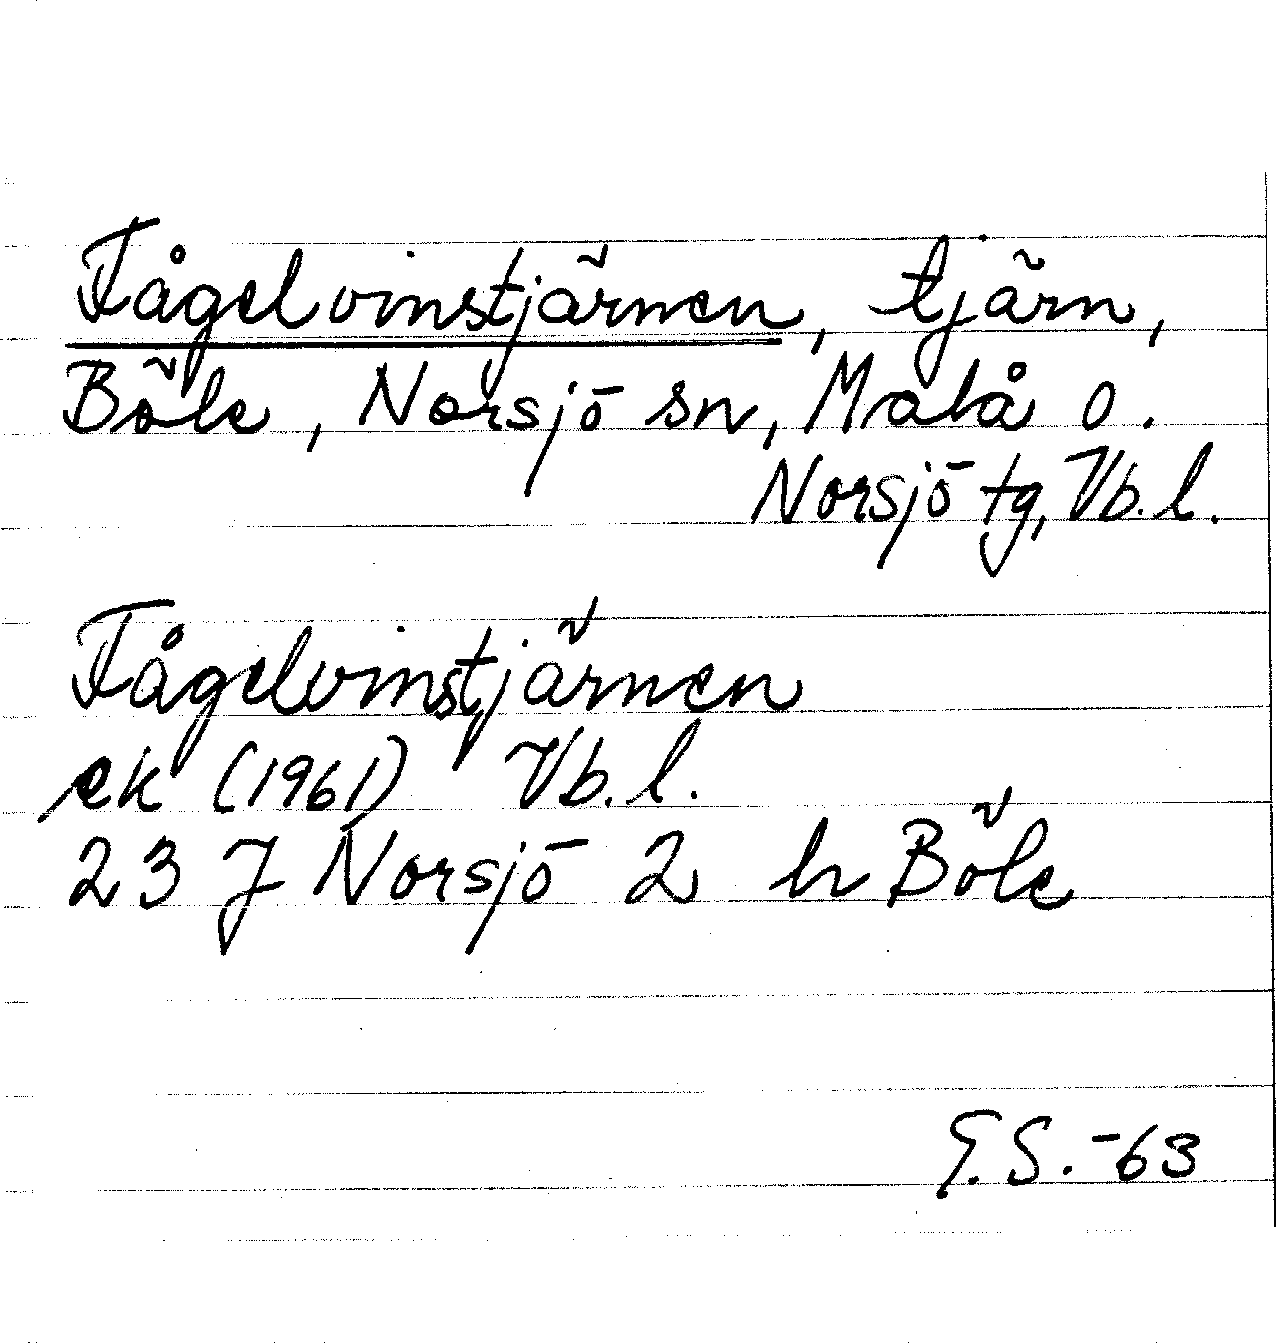 Fågelvinstjärnen, tjärn,
Böle, Norsjö sn, Malå o.
Norsjö tg, Vb. l.
Fågelvinstjärnen
ek (1961) Vb. l.
23 J Norsjö 2 h Böle
G. S. -63